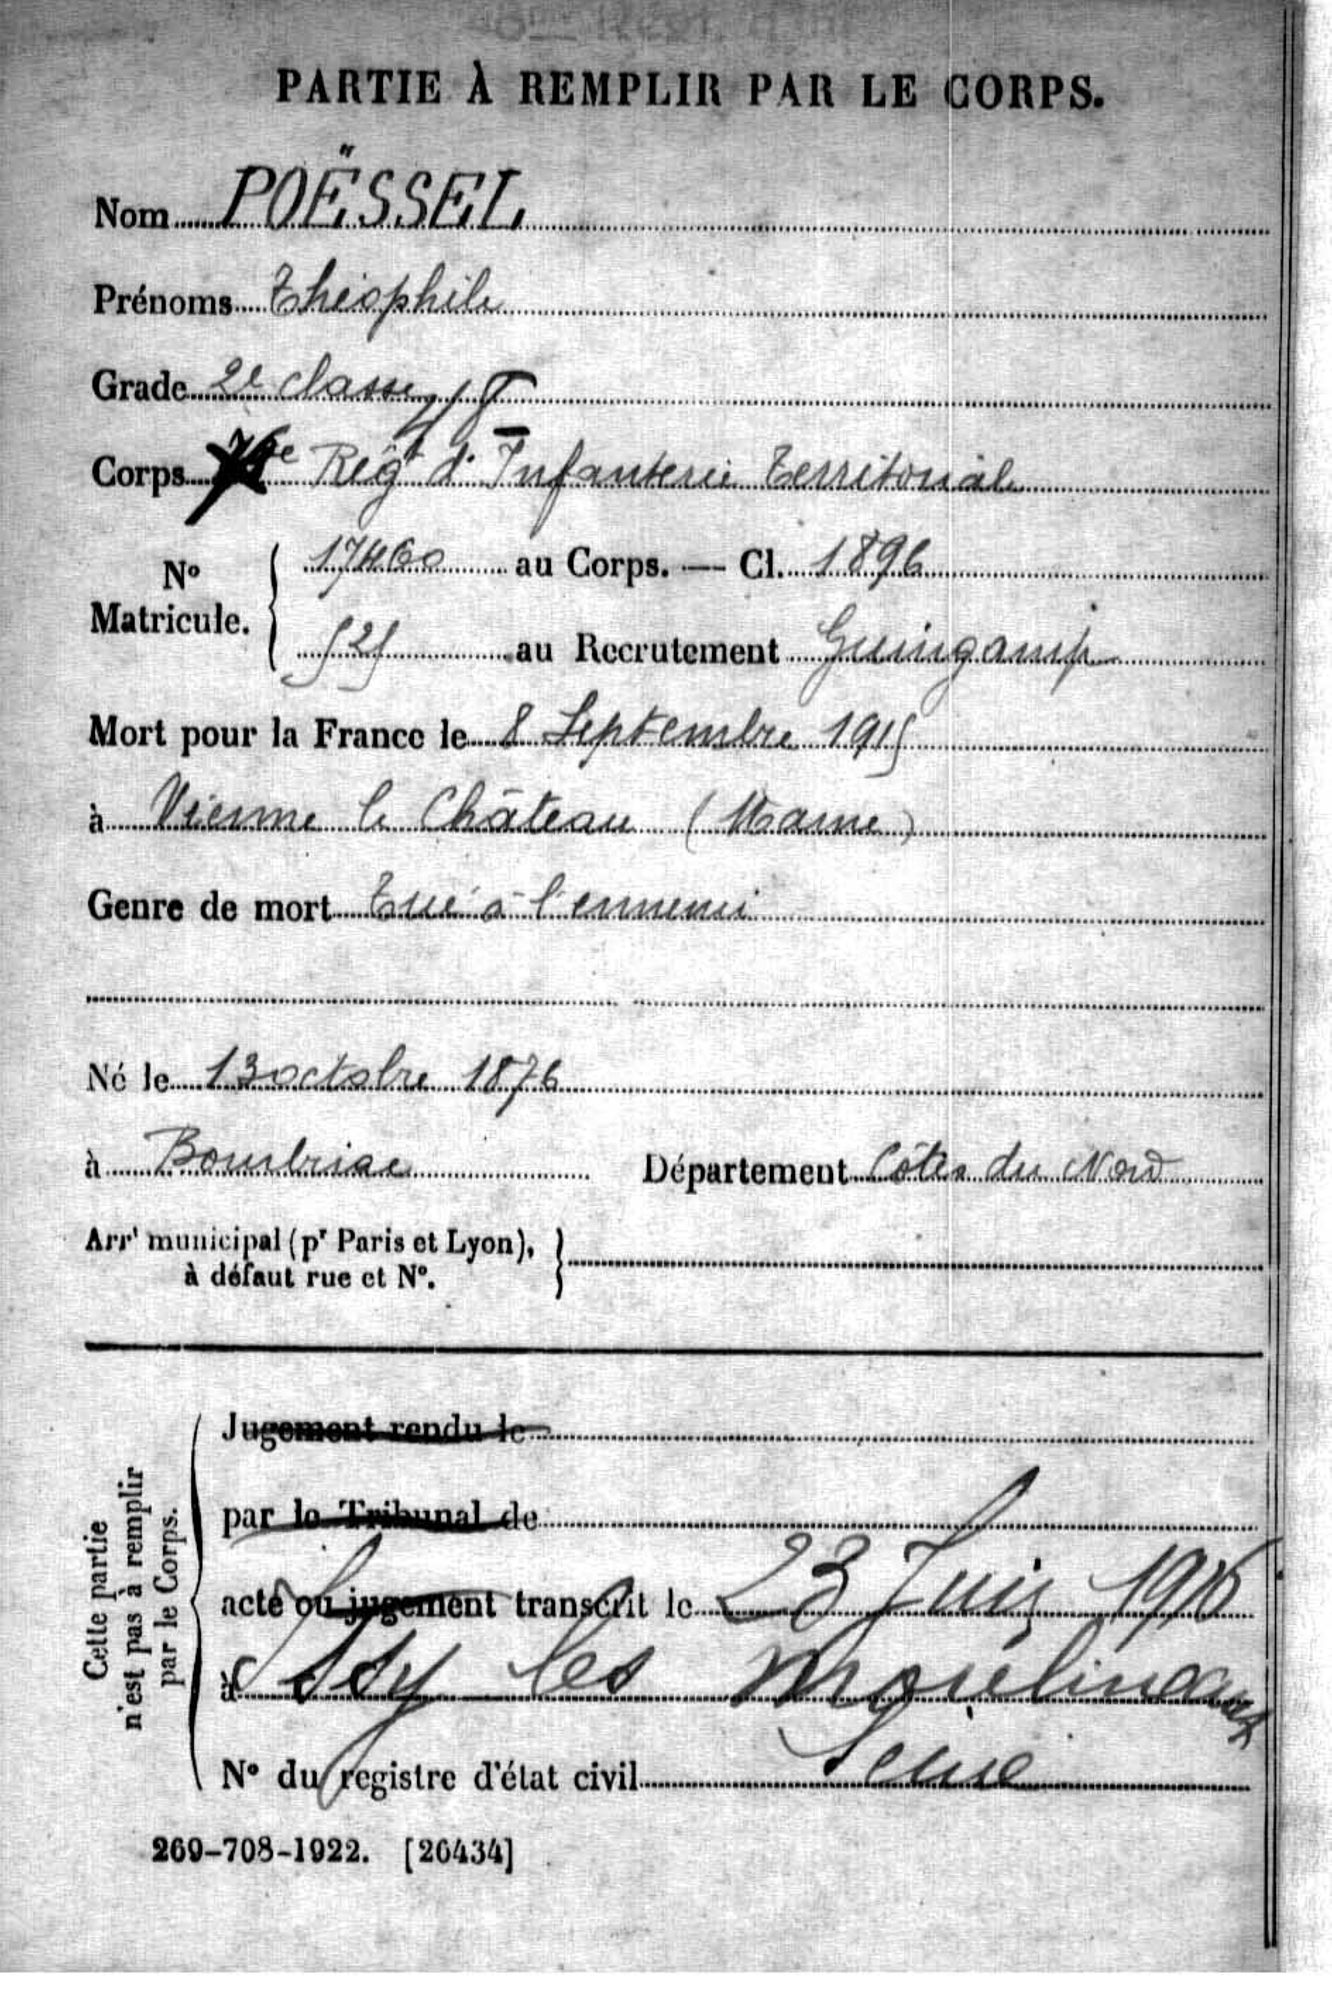 PARTIE À REMPLIR PAR LE CORPS.
Nom POËSSEL
Prénoms Théophile
Grade 2e classe
48
Corps Régt d'Infanterie Territorial
No Matricule. 17460 au Corps. — Cl. 1896
525 au Recrutement Guingamp
Mort pour la France le 8 Septembre 1915
à Vienne le Château (Marne)
Genre de mort Tué à l'ennemi
Né le 13 octobre 1876
à Bourbriac Département Côtes du Nord
Arrt municipal (pr Paris et Lyon),
à défaut rue et No.
Cette partie
n'est pas à remplir
par le Corps.
Jugement rendu le
par le Tribunal de
acte ou jugement transcrit le 23 Juin 1916
à Issy les Moulineaux
Seine
No du registre d'état civil
269-708-1922. [26434]